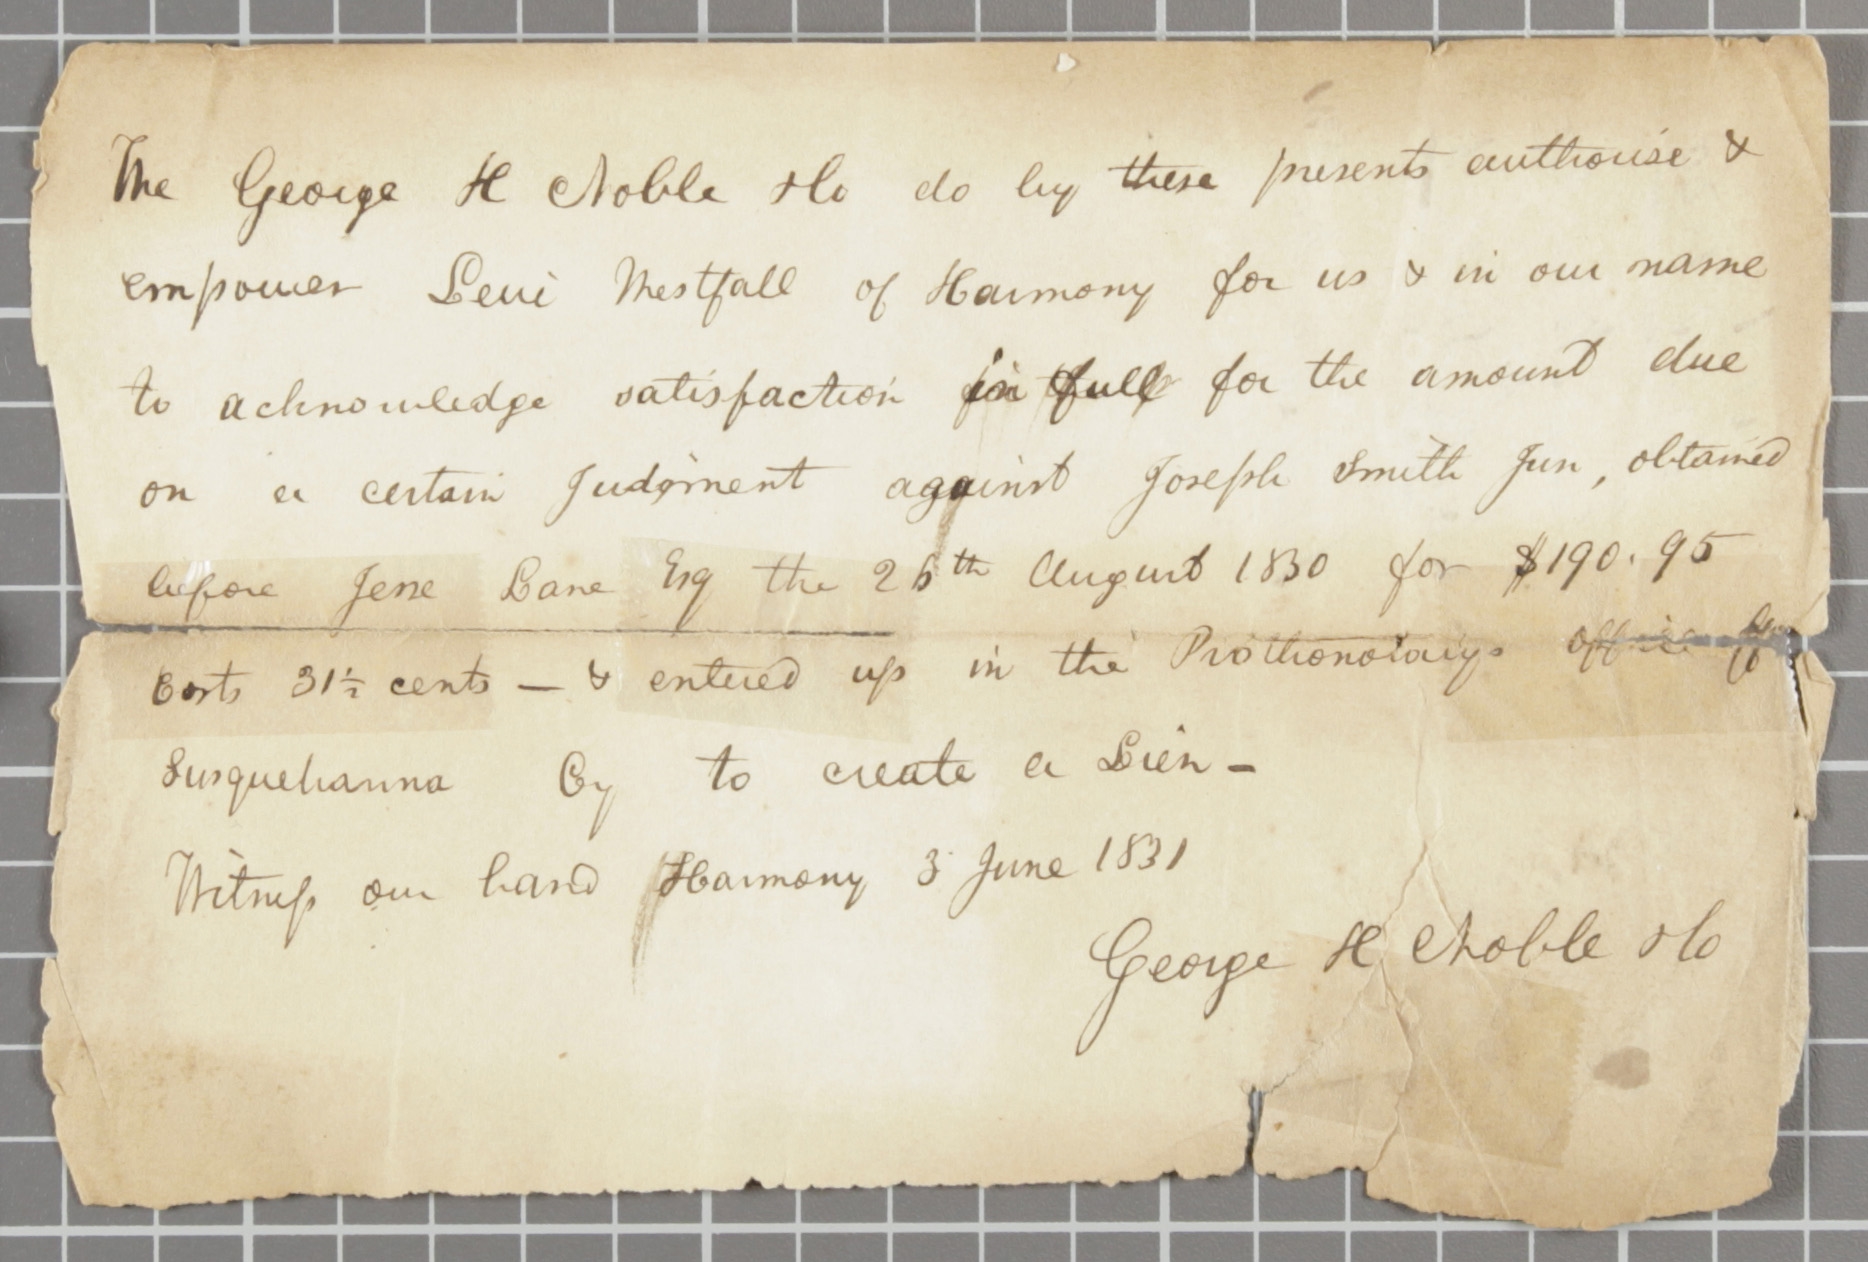 We George H Noble & Co do by these presents authorise &
empower Levi Westfall of Harmony for us & in our name
to acknowledge satisfaction in full for the amount due
on a certain Judgment against Joseph Smith Jun, obtained
before Jesse Lane Esq the 26th August 1830 for $190.95
Costs 31½ cents — & entered up in the Prothonotarys office
Susquehanna Cy to create a Lien —
Witness our hand Harmony 3 June 1831
George H Noble & Co